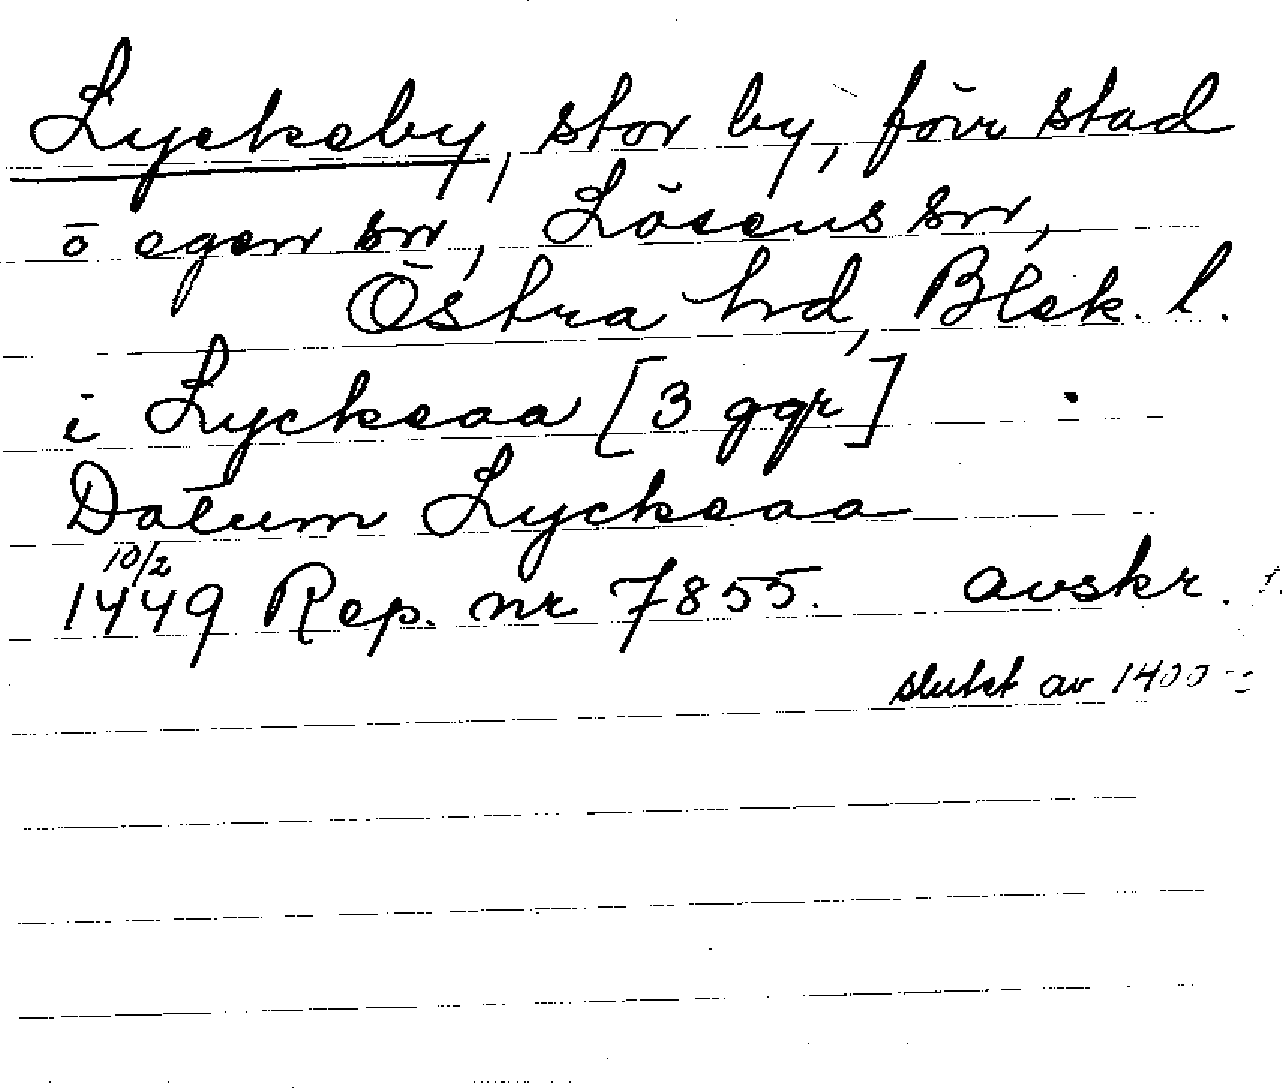 Lyckeby, stor by, förr stad
o egen sn, Lösens sn,
Östra hd, Blek. l.
i Lyckeaa [3 ggr]
Datum Lyckeaa
10/2
1449 Rep. nr 7855. avskr.
slutet av 1400-t